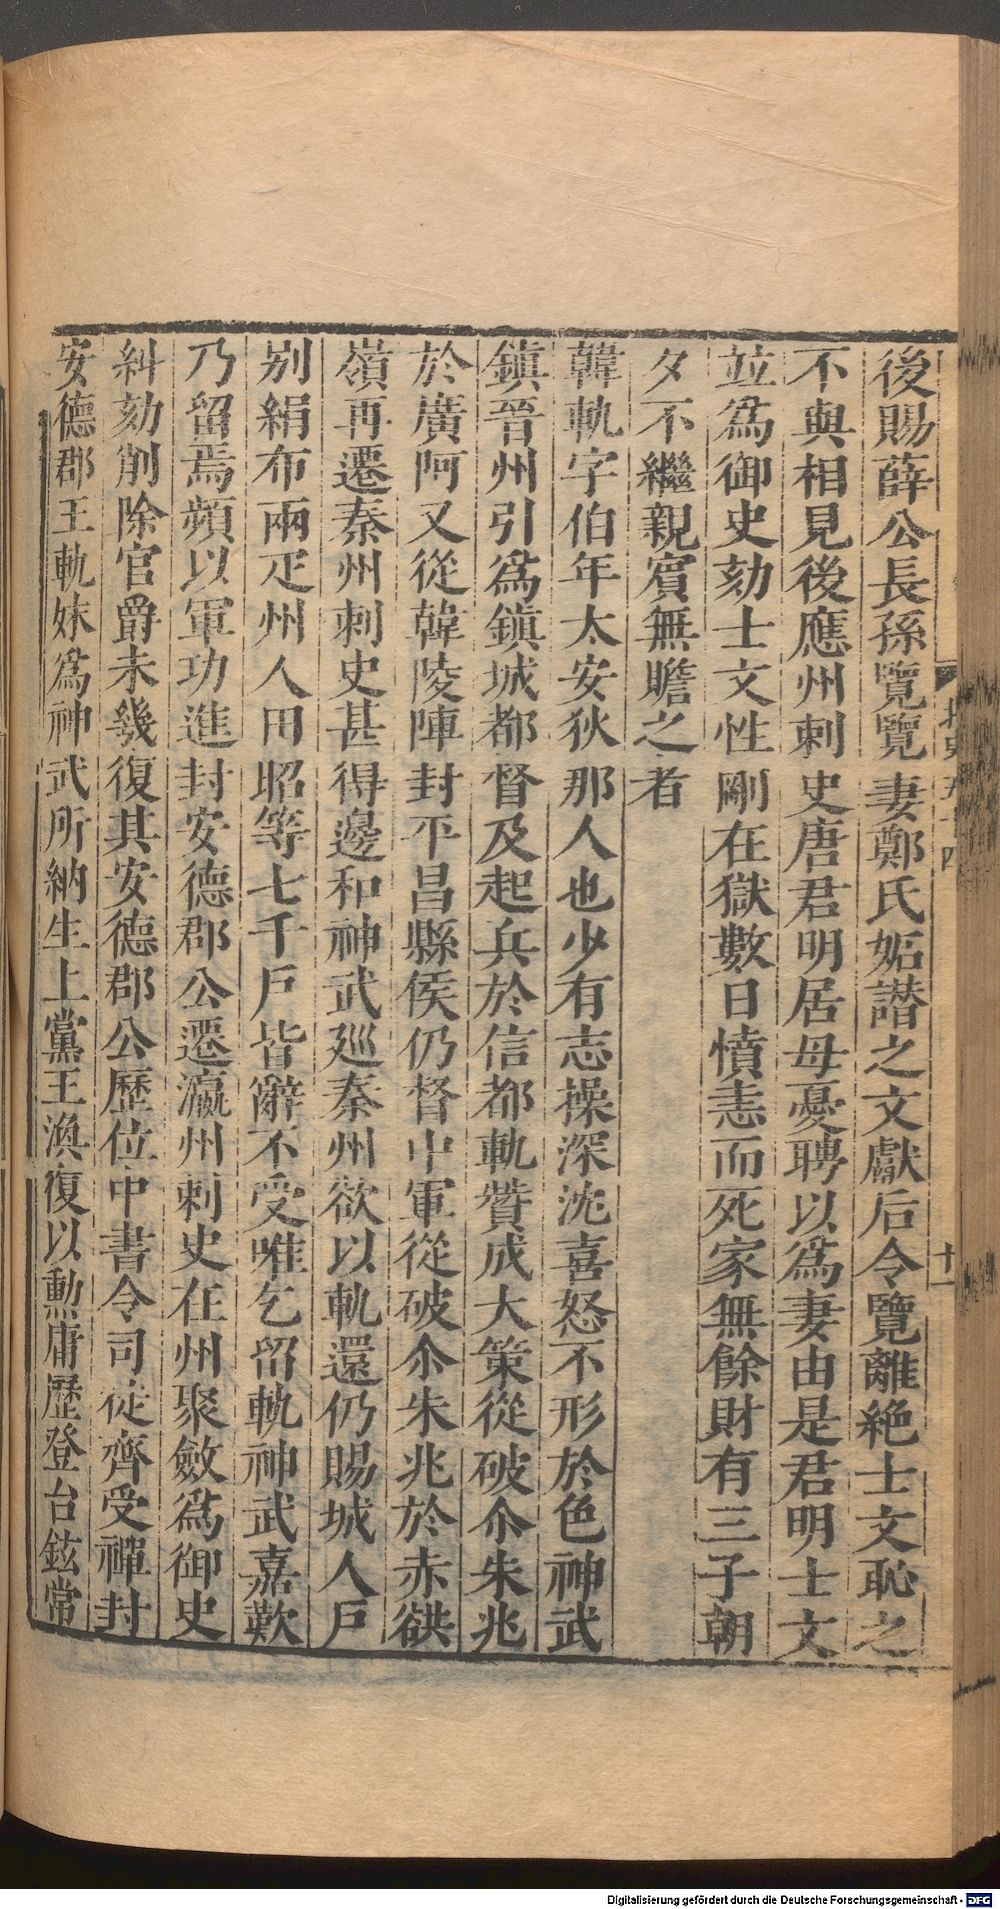 後賜薛公長孫覽覽妻鄭氏妬譖之文獻后令覽離絶士文恥之
不與相見後應州刺史唐君明居母憂聘以爲妻由是君明士文
竝爲御史劾士文性剛在獄數日憤恚而死家無餘財有三子朝
夕不繼親賓無贍之者
韓軌字伯年太安狄那人也少有志操深沈喜怒不形於色神武
鎮晉州引爲鎮城都督及起兵於信都軌贊成大策從破尒朱兆
於廣阿又從韓陵陣封平昌縣侯仍督中軍從破尒朱兆於赤谼
嶺再遷秦州刺史甚得邊和神武廵秦州欲以軌還仍賜城人戶
别絹布兩疋州人田昭等七千戶皆辭不受唯乞留軌神武嘉歎
乃留焉頻以軍功進封安德郡公遷瀛州刺史在州聚斂爲御史
糾劾削除官爵未幾復其安德郡公歷位中書令司徒齊受禪封
安德郡王軌妹爲神武所納生上黨王渙復以勲庸歷登台鉉常
十一
Digitalisierung gefördert durch die Deutsche Forschungsgemeinschaft - DFG